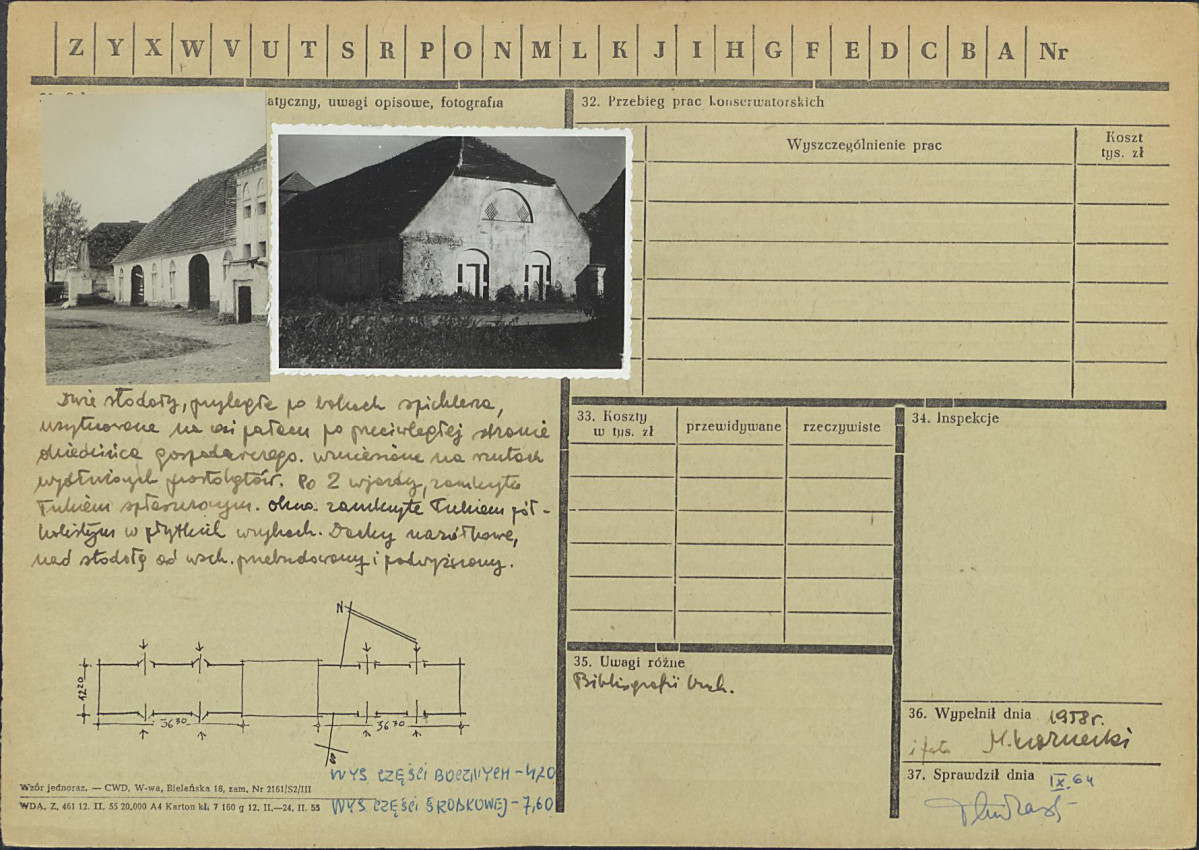 Z Y X W V U T S R P O N M L K J I H G F E D C B A Nr
atyczny, uwagi opisowe, fotografia
Dwie stodoły, przyległe po bokach spichlerza,
usytuowane na osi pałacu po przeciwległej stronie
dziedzińca gospodarczego. wzniesione na rzutach
wydłużonych prostokątów. Po 2 wjazdy, zamknięte
łukiem spłaszczonym. okna zamknięte łukiem pół-
kolistym w płytkich wnękach. Dachy naczółkowe,
nad stodołą od wsch. przebudowany i podwyższony.
N
12 20
36 30
36 30
WYS CZĘŚCI BOCZNYCH - 4,20
WYS CZĘŚCI ŚRODKOWEJ - 7,60
Wzór jednoraz. — CWD, W-wa, Bielańska 18, zam. Nr 2161/S2/III
WDA. Z. 461 12. II. 55 20.000 A4 Karton kl. 7 160 g 12. II.—24. II. 55
32. Przebieg prac konserwatorskich
Wyszczególnienie prac
Koszt
tys. zł
33. Koszty
w tys. zł
przewidywane
rzeczywiste
34. Inspekcje
35. Uwagi różne
Bibliografii brak.
36. Wypełnił dnia 1958 r.
i foto M. Kornecki
37. Sprawdził dnia IX. 64